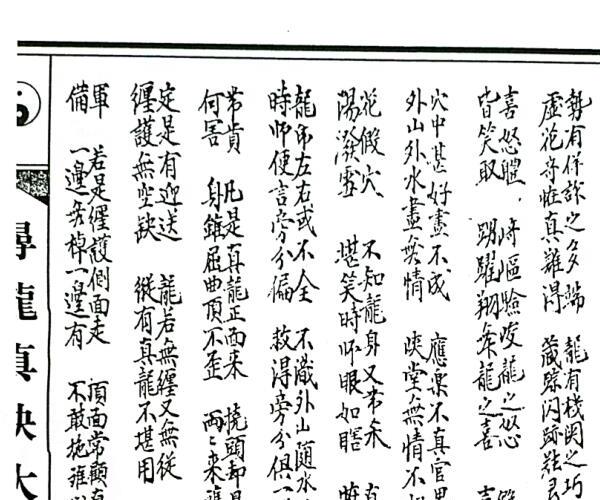 勢有 之多端 龍有機関之巧
虛花奇怪真難得 藏踪閃跡
喜怒 崎嶇險峻龍之怒
皆笑取 踴躍翔舞龍之喜 喜
穴中甚好盡不成 應樂不真官
外山外水盡無情 峽堂無情不
花假穴 不知龍身又常
陽潑雪 堪笑時师眼如瞎
龍 左右或不全 不識外山随水
時师便言旁分偏 救得旁分俱一
常肯 凡是真龍正面来 撓頭却是
何害 身雖屈曲頂不歪 両々来應
定是有迎送 龍若無纏又無從
纏護無空缺 從有真龍不堪用
軍 若是纏護側面走 頂面常顧
備 一邊无棹一邊有 不敢拖
尋龍真訣大